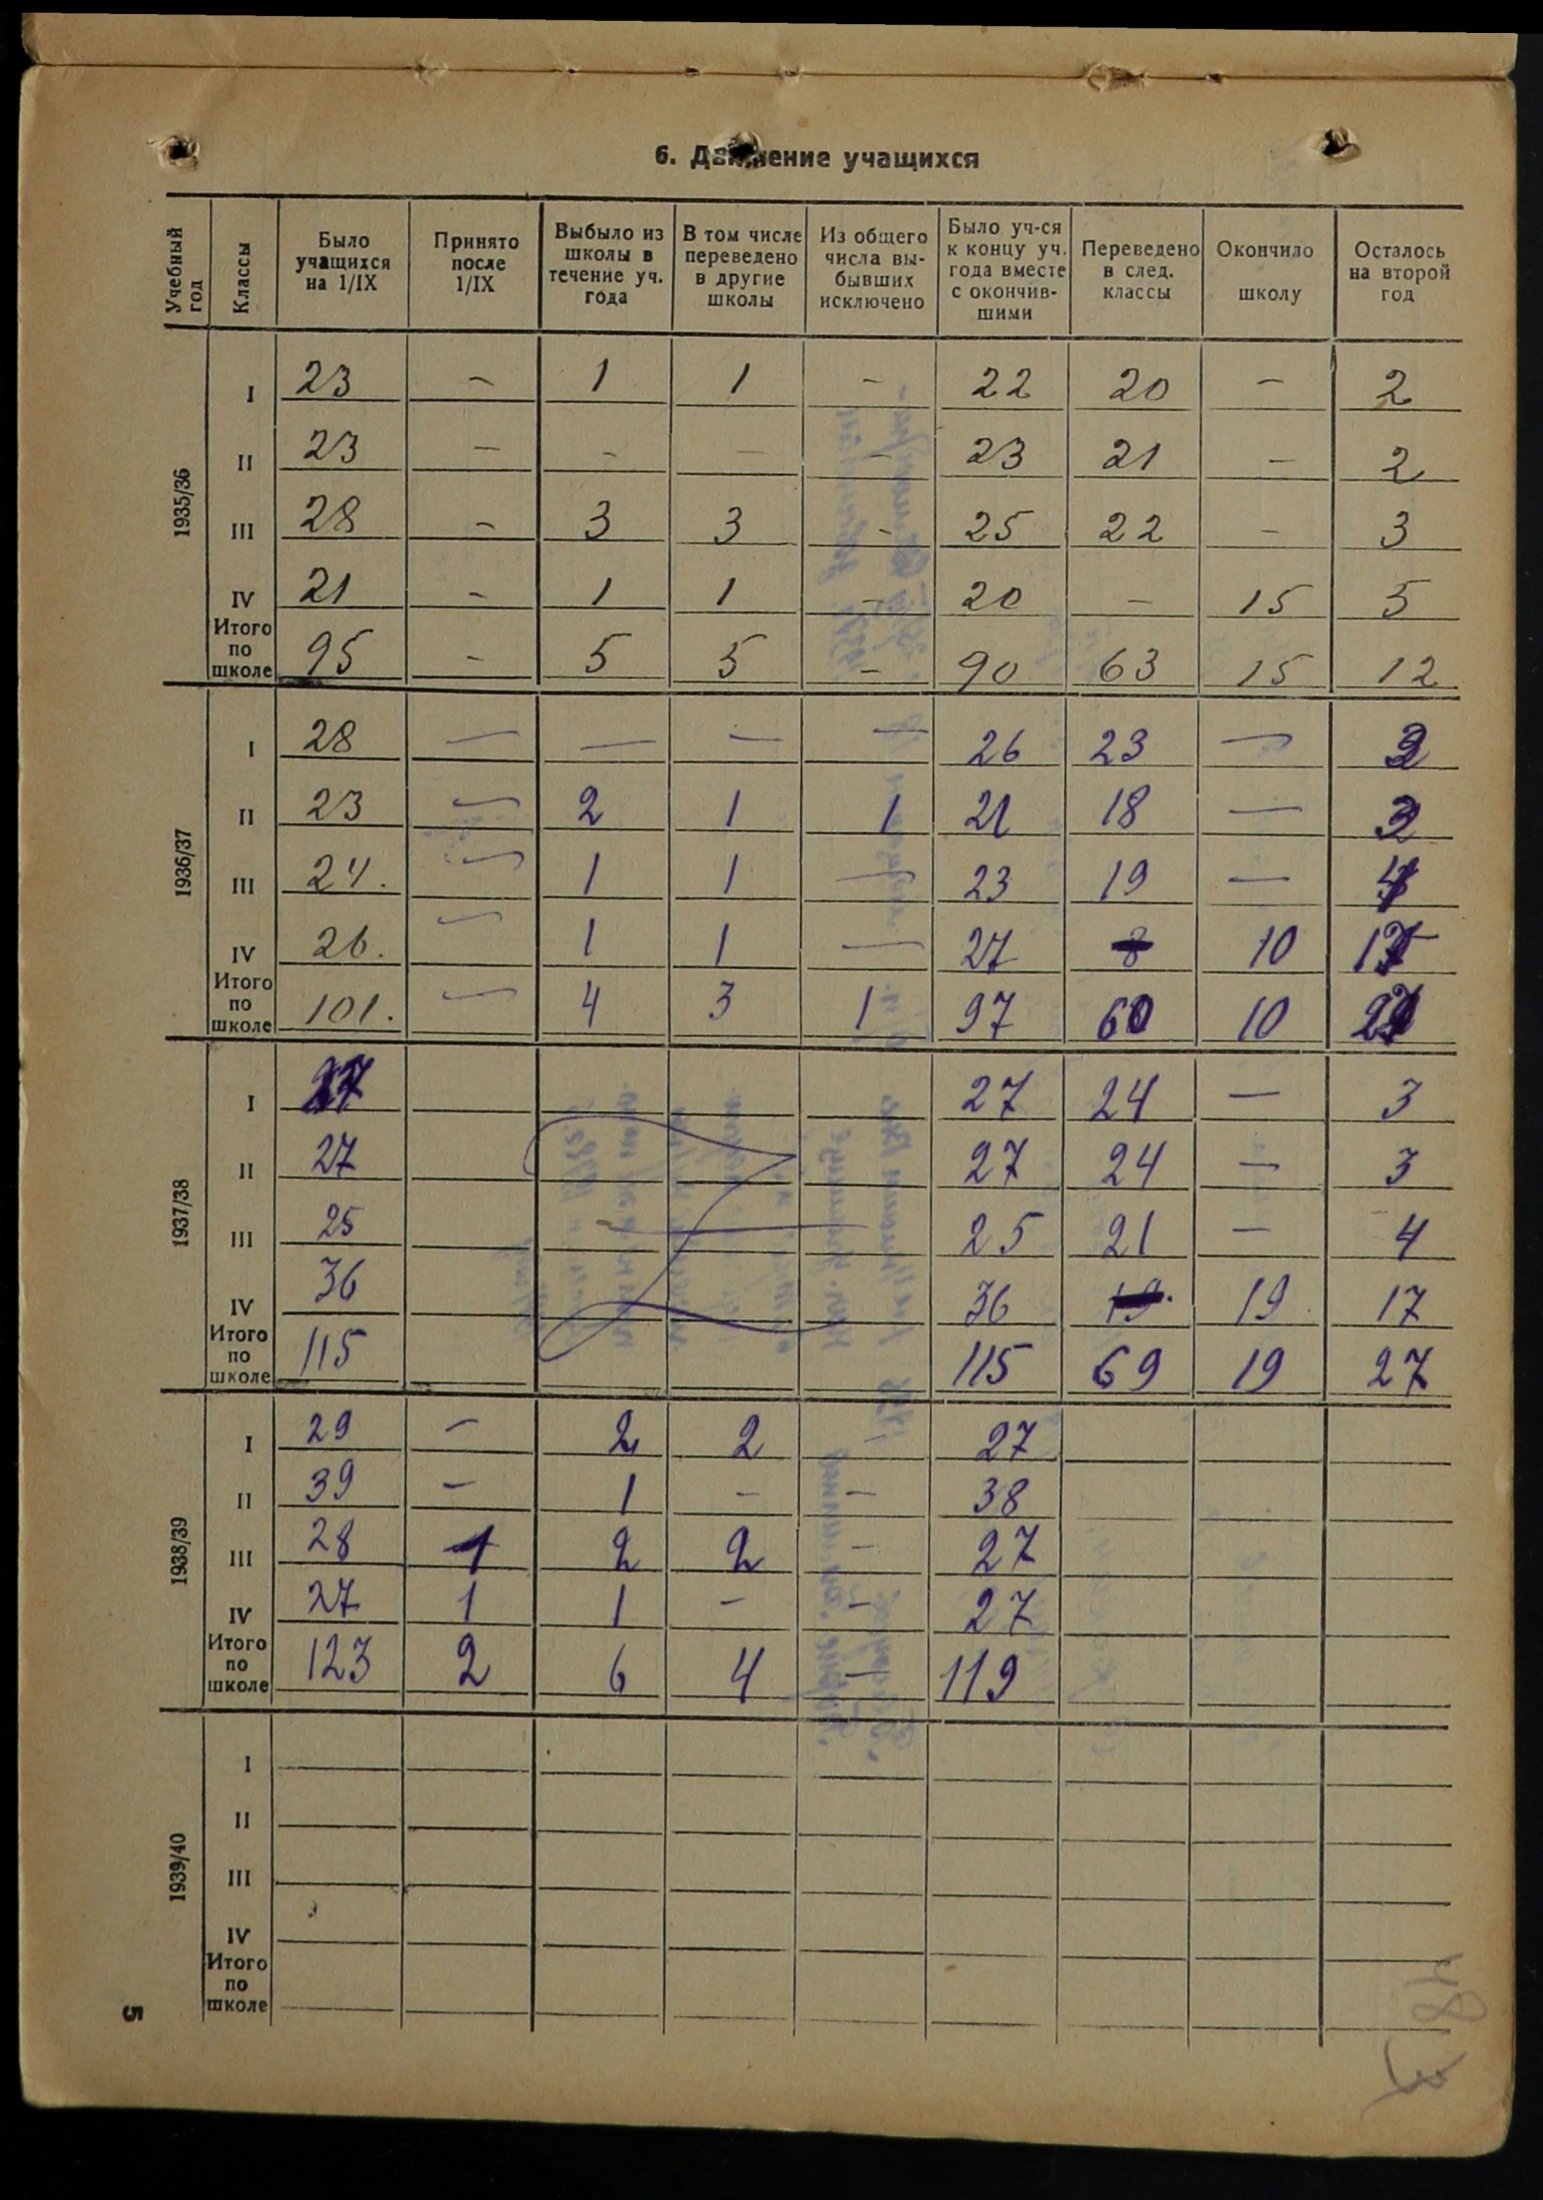 6. Движение учащихся
Учебный год | Классы | Было учащихся на 1/IX | Принято после 1/IX | Выбыло из школы в течение уч. года | В том числе переведено в другие школы | Из общего числа вы-бывших исключено | Было уч-ся к концу уч. года вместе с окончив-шими | Переведено в след. классы | Окончило школу | Осталось на второй год
1935/36
I 23 — 1 1 — 22 20 — 2
II 23 — — — 23 21 — 2
III 28 — 3 3 — 25 22 — 3
IV 21 — 1 1 — 20 — 15 5
Итого по школе 95 — 5 5 — 90 63 15 12
1936/37
I 28 — — — — 26 23 —
II 23 — 2 1 1 21 18 —
III 24. — 1 1 — 23 19 — 4
IV 26. — 1 1 — 27 10
Итого по школе 101. — 4 3 1 97 60 10
1937/38
I 27 27 24 — 3
II 27 27 24 — 3
III 25 25 21 — 4
IV 36 36 19 17
Итого по школе 115 115 69 19 27
1938/39
I 29 — 2 2 27
II 39 — 1 — — 38
III 28 1 2 2 — 27
IV 27 1 1 — — 27
Итого по школе 123 2 6 4 — 119
1939/40
I
II
III
IV
Итого по школе
5